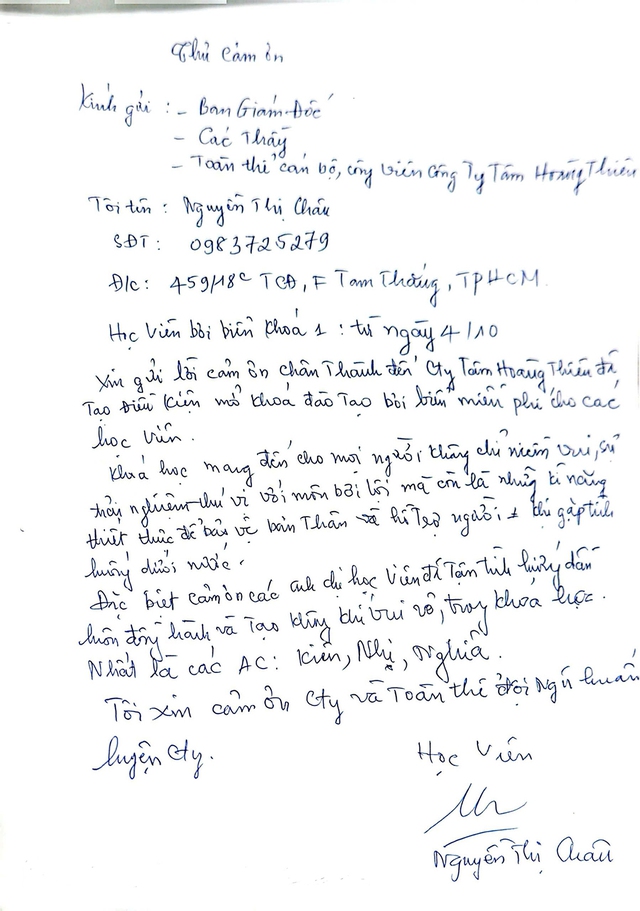 Thư cảm ơn
Kính gửi : - Ban Giám Đốc
- Các Thầy
- Toàn thể cán bộ, công viên Công Ty Tâm Hoàng Thiên
Tôi tên : Nguyễn Thị Châu
SĐT : 0983725279
Đ/c : 459/18c TCĐ, F Tam Thắng, TPHCM.
Học Viên bơi biển khoá 1 : từ ngày 4/10
Xin gửi lời cảm ơn chân Thành đến Cty Tâm Hoàng Thiên đã
Tạo Điều Kiện mở khoá đào Tạo bơi biển miễn phí cho các
học viên.
Khoá học mang đến cho mọi người không chỉ niềm vui, sự
trải nghiệm thú vị với môn bơi lội mà còn là những kĩ năng
thiết thực để bảo vệ bản Thân và hỗ Trợ người khi gặp tình
huống dưới nước.
Đặc biệt cảm ơn các anh chị học Viên đã Tận tình hướng dẫn
luôn đồng hành và Tạo không khí vui vẻ, trong khoá học.
Nhất là các AC : Kiên, Nhị, Nghĩa.
Tôi xin cảm ơn Cty và Toàn thể đội Ngũ huấn
luyện Cty.
Học Viên
Nguyễn Thị Châu